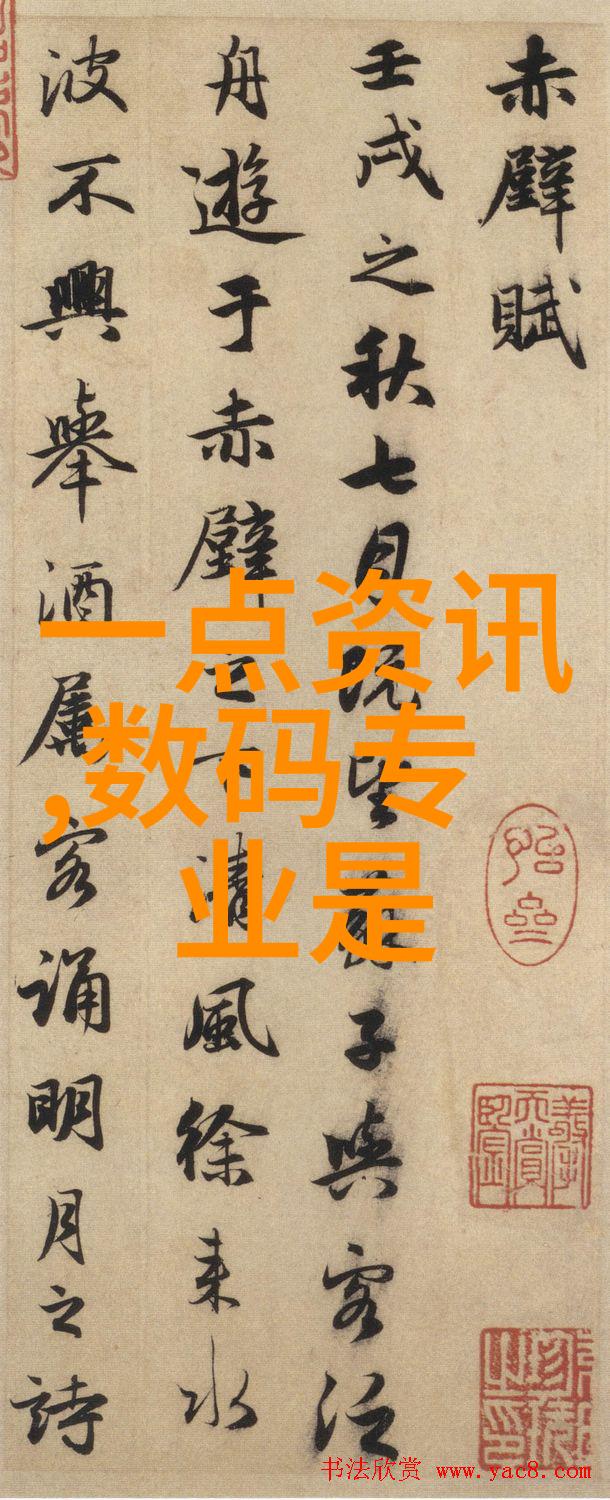 赤壁賦
壬戌之秋七月既望蘇子與客泛
舟遊于赤壁之下清風徐来水
波不興舉酒屬客誦明月之詩
一点资讯
,数码专
业是
书法欣赏 www.yac8.com